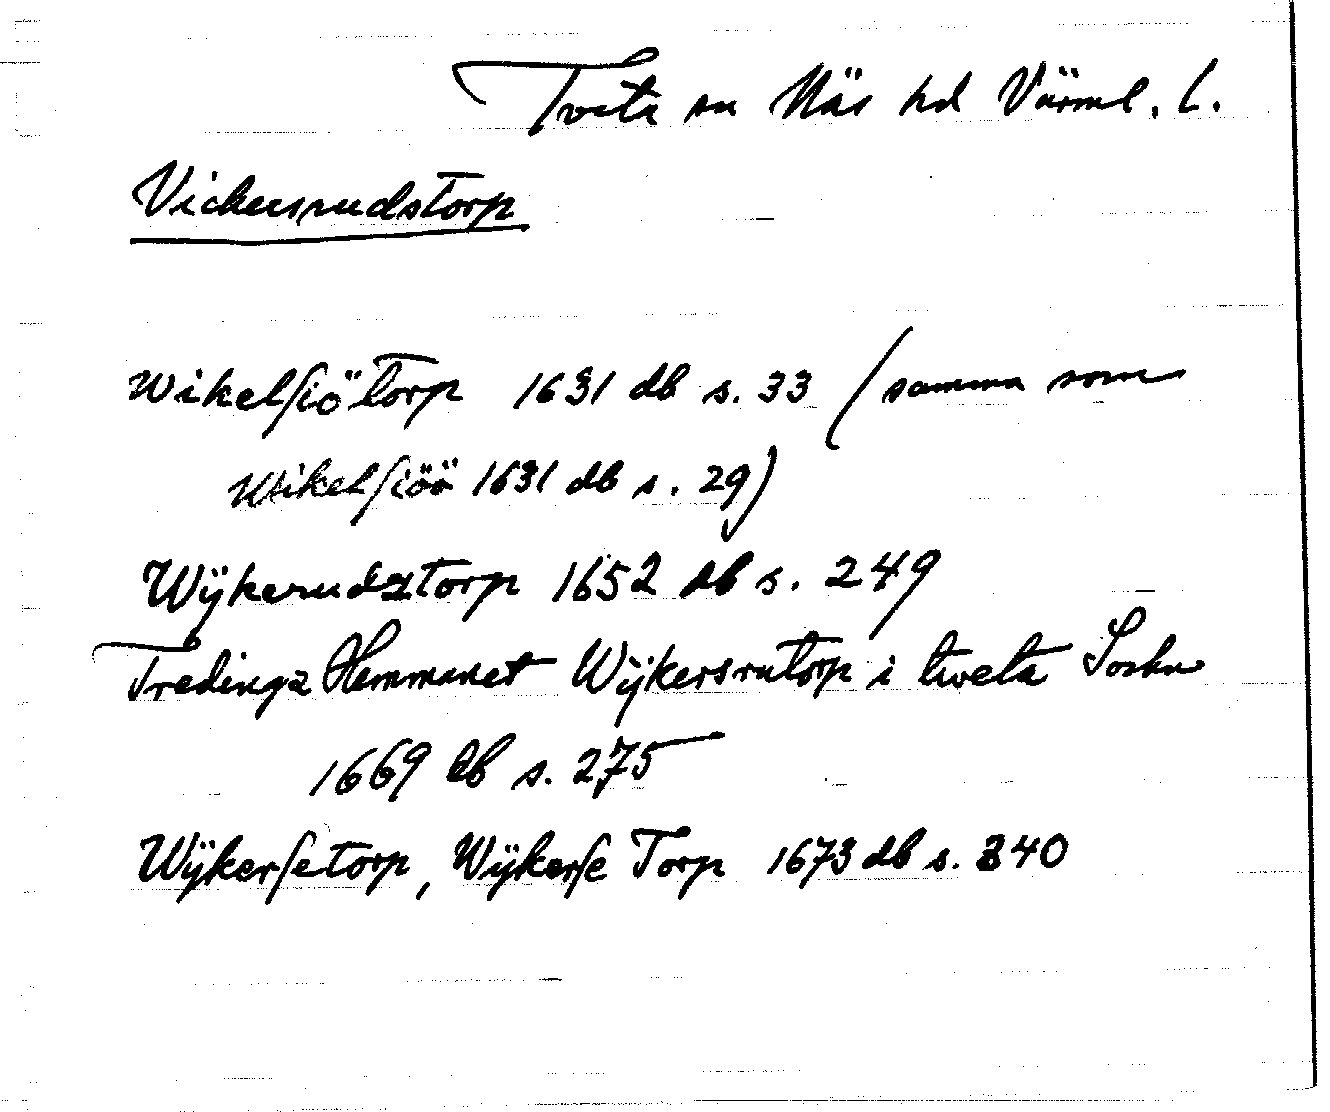 Tveta sn Näs hd Värml. l.
Vickersrudstorp
Wikelsiötorp 1631 db s. 33 (samma som
Wikelsiöö 1631 db s. 29)
Wÿkerudztorp 1652 db s. 249
Tredingz Hemmanet Wÿkersrutorp i tweta Sockn
1669 db s. 275
Wÿkersetorp, Wÿkerse Torp 1673 db s. 340